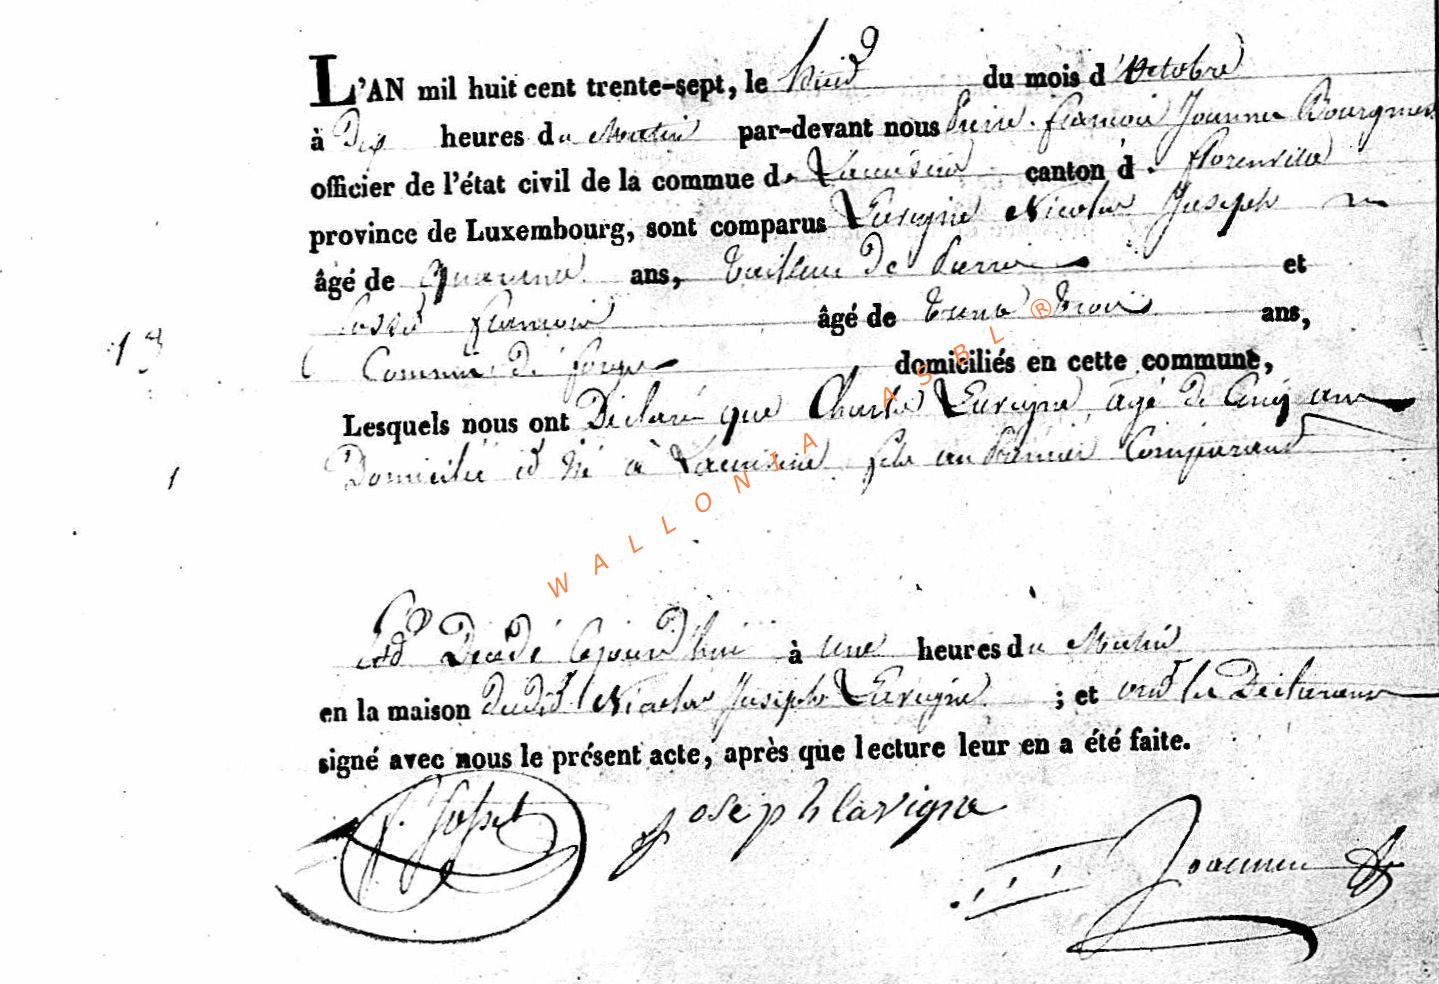 L'AN mil huit cent trente-sept, le huit du mois d'Octobre
à Dix heures du Matin par-devant nous Pierre françois Joannes Bourgmestre
officier de l'état civil de la commue de canton d florenville
province de Luxembourg, sont comparus Lavigne Nicolas Joseph
âgé de quarante ans, tailleur de Pierre et
françois âgé de trente trois ans,
Commis de forge domiciliés en cette commune,
13
Lesquels nous ont Déclaré que Charles Lavigne, agé de Cinq ans
Domicilié et Né a fils au Premier Comparant
1
Est Décédé Cejourd'hui à une heures du Matin
en la maison dudit Nicolas Joseph Lavigne ; et ont les Déclarants
signé avec nous le présent acte, après que lecture leur en a été faite.
Joseph lavigne
WALLONIA ASBL ®